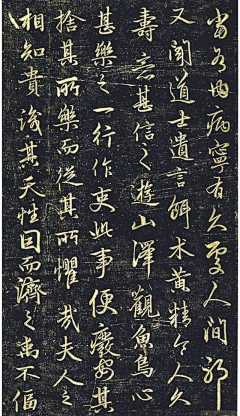 當有內病寧有久處人間耶
又聞道士遺言餌朮黃精令人久
壽意甚信之遊山澤觀魚鳥心
甚樂之一行作吏此事便廢安其
捨其所樂而從其所懼哉夫人之
相知貴識其天性因而濟之禹不偪